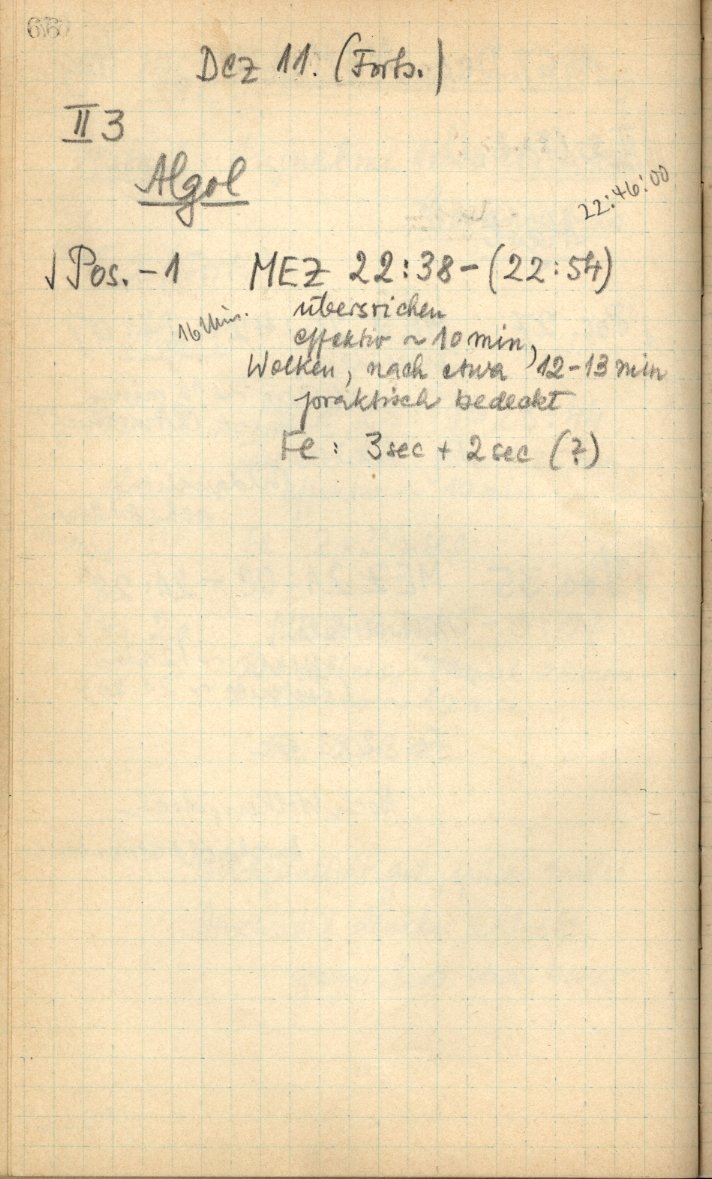 66
Dez 11. (Forts.)
II 3
Algol
22:46:00
√ Pos. -1 MEZ 22:38-(22:54)
16 Min.
überstrichen
effektiv ~ 10 min,
Wolken, nach etwa 12-13 min
praktisch bedeckt
Fe: 3sec + 2sec (?)